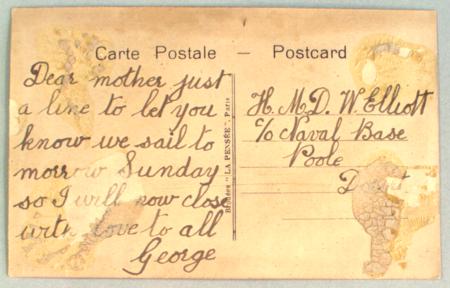 Carte Postale — Postcard
Dear mother just
a line to let you
know we sail to
morrow Sunday
so I will now close
with love to all
George
"LA PENSÉE", Paris
H. M. D. W Elliott
C/o Naval Base
Poole
Dorset